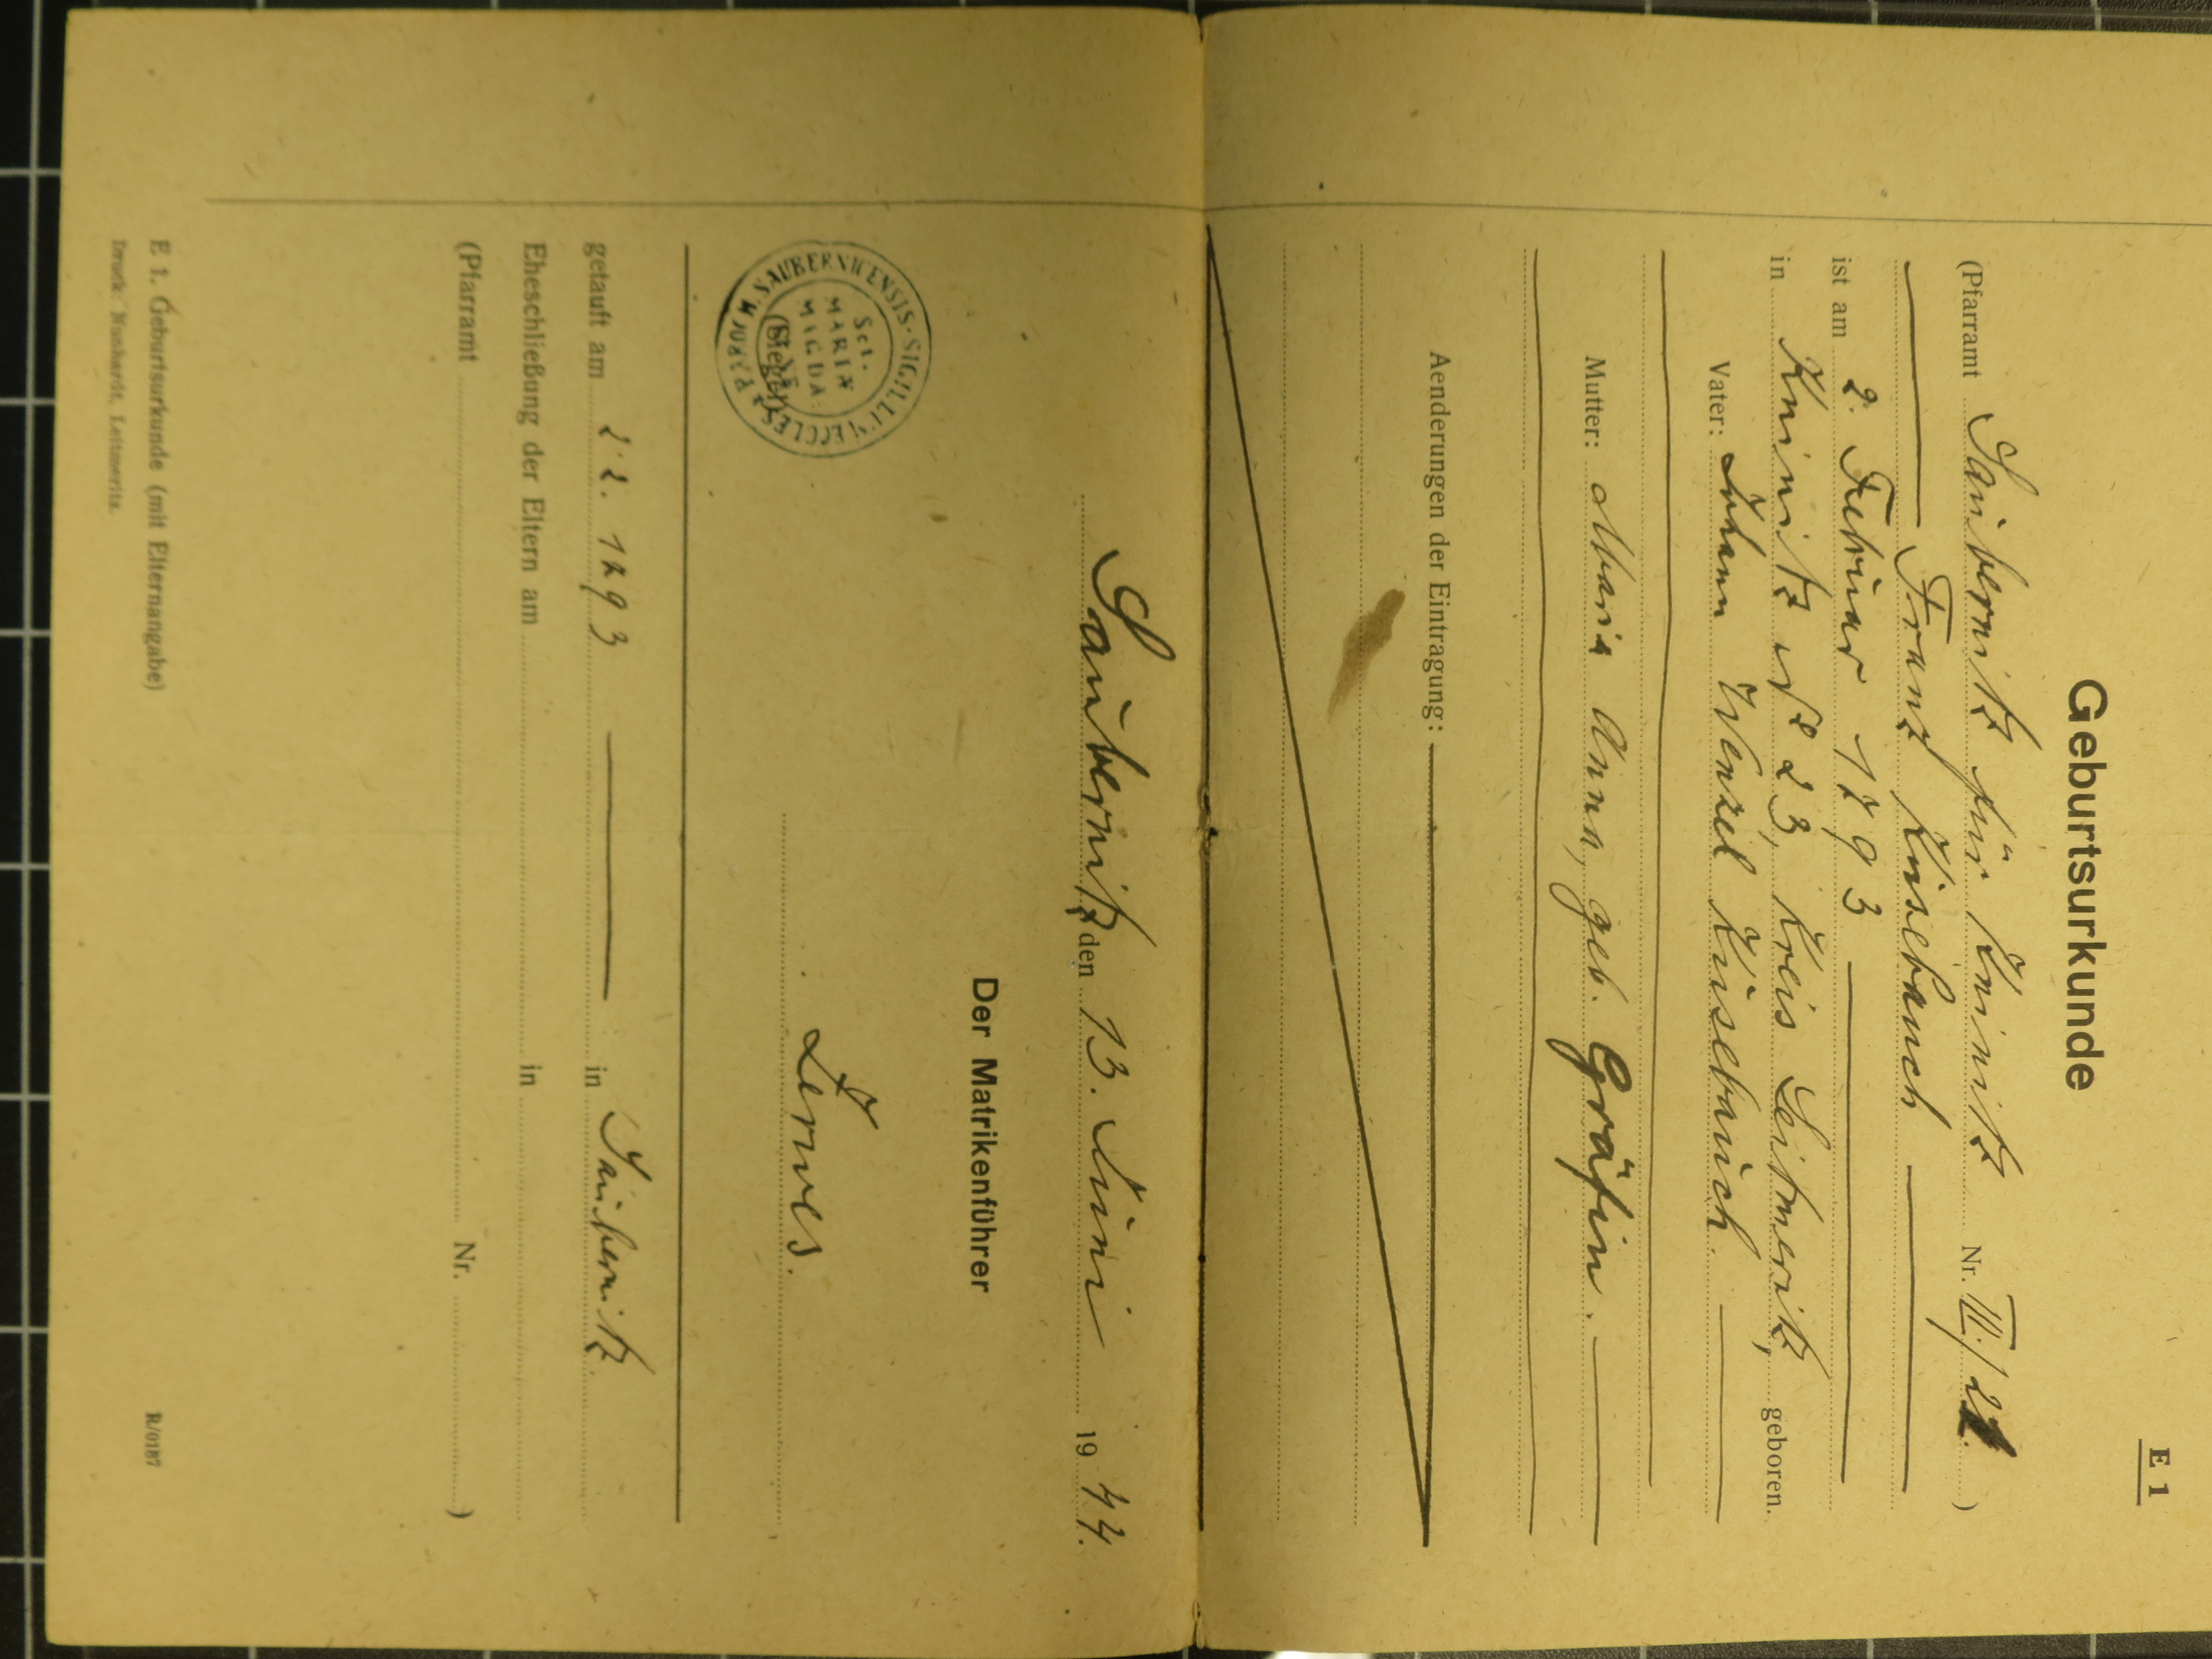 E 1
Geburtsurkunde
(Pfarramt Saubernitz für Kninitz Nr. III./21.)
Franz Küsebauch
ist am 2. Februar 1793
in Kninitz No 23, Kreis Leitmeritz, geboren.
Vater: Johann Wenzel Küsebauch.
Mutter: Maria Anna, geb. Gräfin.
Aenderungen der Eintragung:
Saubernitz den 13. Juni 1944.
Der Matrikenführer
SIGILLUM ECCLESIÆ PAROCH. SAUBERNITENSIS
Sct.
MARIÆ
MAGDA
(Siegel)
Zerwes.
getauft am 2.2. 1793 in Saubernitz.
Eheschließung der Eltern am in
(Pfarramt Nr. )
E 1. Geburtsurkunde (mit Elternangabe) R/0187
Druck: Nunhardt, Leitmeritz.